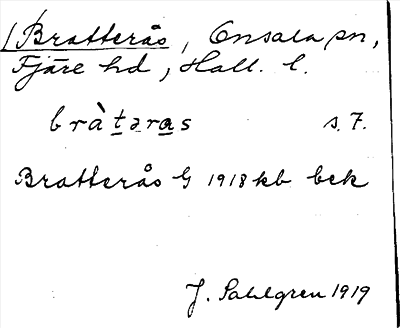 Bratterås, Onsala sn,
Fjäre hd, Hall. l.
bràtəras s. 7.
Bratterås G 1918 kb bek
J. Sahlgren 1919